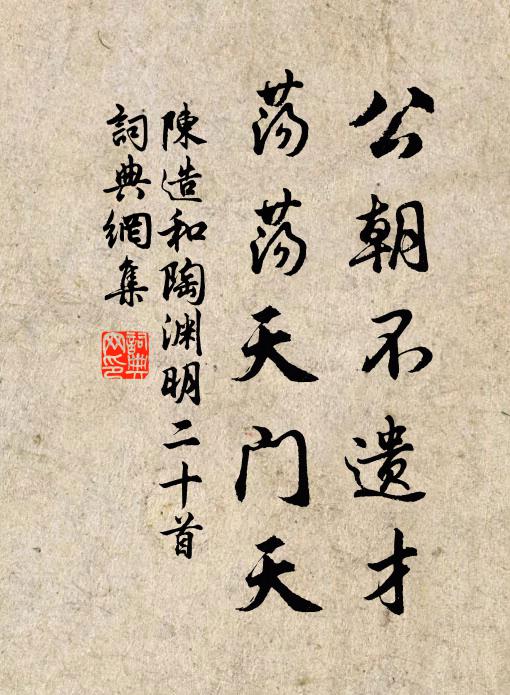 公朝不遗才
荡荡天门天
陳造和陶淵明二十首
詞典網集
詞典网印